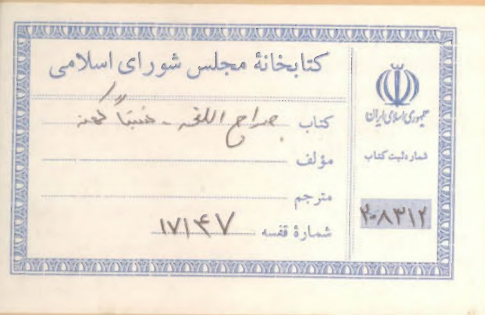 کتابخانهٔ مجلس شورای اسلامی
کتاب صراح اللغه -
مؤلف
مترجم
شمارهٔ قفسه ۱۷۱۴۷
جمهوری اسلامی ایران
شماره ثبت کتاب
۲۰۸۳۱۲